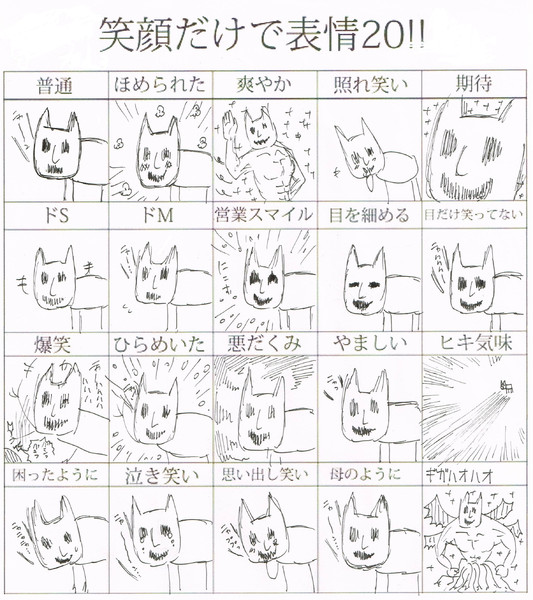 笑顔だけで表情20!!
普通
ほめられた
爽やか
照れ笑い
期待
ドS
ドM
営業スマイル
目を細める
目だけ笑ってない
爆笑
ひらめいた
悪だくみ
やましい
ヒキ気味
困ったように
泣き笑い
思い出し笑い
母のように
ギガハオハオ